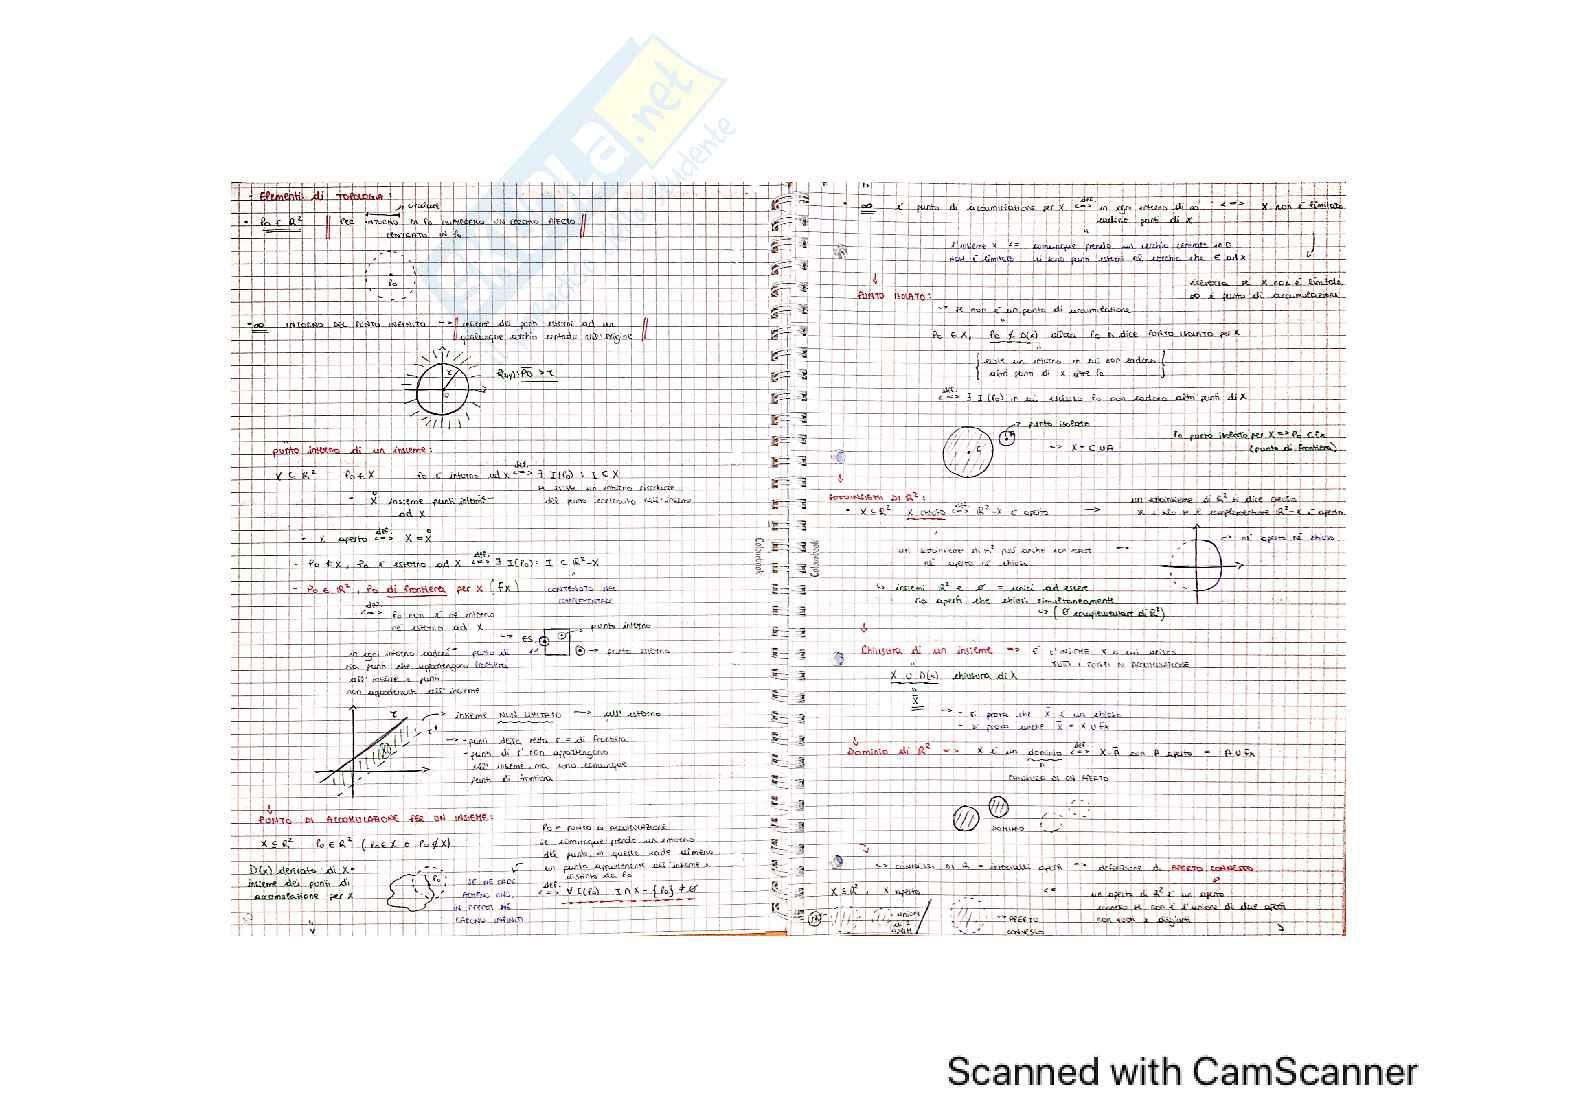 - Elementi di TOPOLOGIA:
circolare
- P₀ ∈ R² || PER INTORNO DI P₀ UN CERCHIO APERTO ||
CENTRATO IN P₀
P₀
- ∞ INTORNO DEL PUNTO INFINITO → || insieme dei punti esterni ad un
qualunque cerchio centrato nell'origine ||
r
O
P(x,y): PO > r
punto interno di un insieme:
X ⊂ R² P₀ ∈ X P₀ è interno ad X <=> def. ∃ I(P₀) : I ⊂ X
se esiste un intorno circolare
del punto contenuto nell'insieme
- X̊ insieme punti interni
ad X
- X aperto <=> def. X = X̊
- P₀ ∉ X, P₀ è esterno ad X <=> def. ∃ I(P₀): I ⊂ R²-X
CONTENUTO NEL
COMPLEMENTARE
- P₀ ∈ R², P₀ di frontiera per X (Fx)
<=> def. P₀ non è né interno
né esterno ad X
→ ES.
punto interno
→ punto esterno
punto di
frontiera
in ogni intorno
sia punti che appartengono
all'insieme e punti
non appartenenti all'insieme
r
r'
→ insieme NON LIMITATO → all'esterno
→ - punti della retta r = di frontiera
- punti di r' non appartengono
all'insieme, ma sono comunque
punti di frontiera
PUNTO DI ACCUMULAZIONE PER UN INSIEME:
X ⊆ R² P₀ ∈ R² (P₀ ∈ X o P₀ ∉ X)
D(x) derivato di X =
insieme dei punti di
accumulazione per X
P₀
SE NE CADE
ALMENO UNO,
CADONO INFINITI
P₀ = PUNTO DI ACCUMULAZIONE
se comunque prendo un intorno
del punto, in quello cade almeno
un punto appartenente all'insieme e
distinto da P₀
<=> def. ∀ I(P₀) I ∩ X - {P₀} ≠ ∅
- ∞ è punto di accumulazione per X <=> def. in ogni intorno di ∞ <=> X non è limitato
cadono punti di X
l'insieme X <= comunque prendo un cerchio centrato in O
non è limitato ci sono punti esterni al cerchio che ∈ ad X
viceversa se X non è limitato
∞ è punto di accumulazione
PUNTO ISOLATO:
→ se non è un punto di accumulazione
P₀ ∈ X, P₀ ∉ D(x) allora P₀ si dice PUNTO ISOLATO per X
{ esiste un intorno in cui non cadono
altri punti di X oltre P₀ }
<=> def. ∃ I(P₀) in cui escluso P₀ non cadono altri punti di X
→ punto isolato
C
A
→ X = C ∪ A
P₀ punto isolato per X => P₀ ∈ Fx
(punto di frontiera)
SOTTOINSIEMI DI R²:
- X ⊆ R² X chiuso <=> def. R²-X è aperto →
un sottoinsieme di R² si dice
se e solo se il complementare R²-X è aperto
un sottoinsieme di R² può anche non essere →
né aperto né chiuso
→ né aperto né chiuso
↳ insiemi R² e ∅ = unici ad essere
sia aperti che chiusi simultaneamente
↳ (∅ complementare di R²)
Chiusura di un insieme → È L'INSIEME X a cui unisco
TUTTI I PUNTI DI ACCUMULAZIONE
X ∪ D(x) chiusura di X
X̄
→ - si prova che X̄ è un chiuso
- si prova anche X̄ = X ∪ Fx
Dominio di R² → X è un dominio <=> def. X = Ā con A aperto = A ∪ Fx
CHIUSURA DI UN APERTO
DOMINIO
↳ CONNESSI DI R = intervalli aperti → definizione di APERTO CONNESSO
X ⊆ R², X aperto <=
un aperto di R² è un aperto
connesso se non è l'unione di due aperti
non vuoti e disgiunti
unione
di 2
→ APERTO
CONNESSO
Colourbook
Colourbook
SKUOLA.net
Scanned with CamScanner